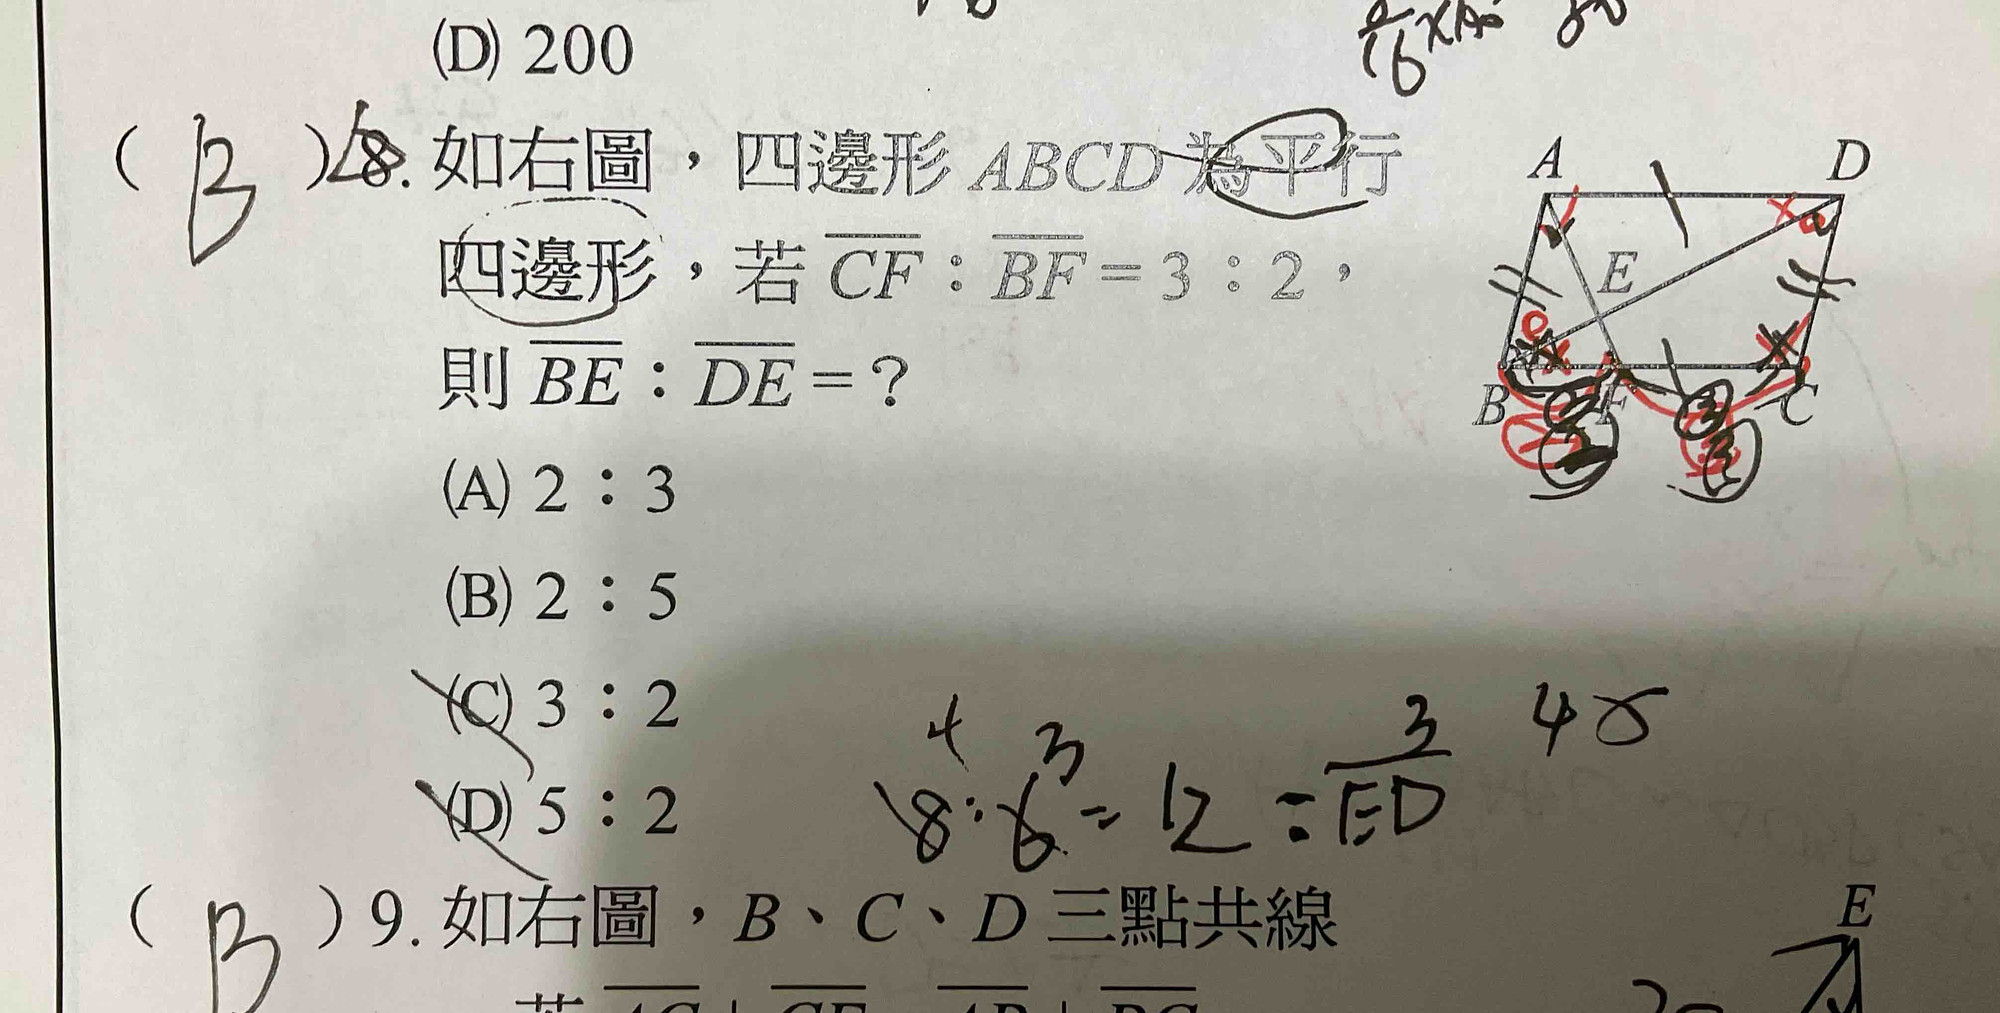 (D) 200
( B ) 8. 如右圖，四邊形 ABCD 為平行
四邊形，若 CF：BF＝3：2，
則 BE：DE＝？
(A) 2：3
(B) 2：5
(C) 3：2
(D) 5：2
A D
E
B F C
4 3 3 48
8:6 = 12 : ED
( B ) 9. 如右圖，B、C、D 三點共線
E